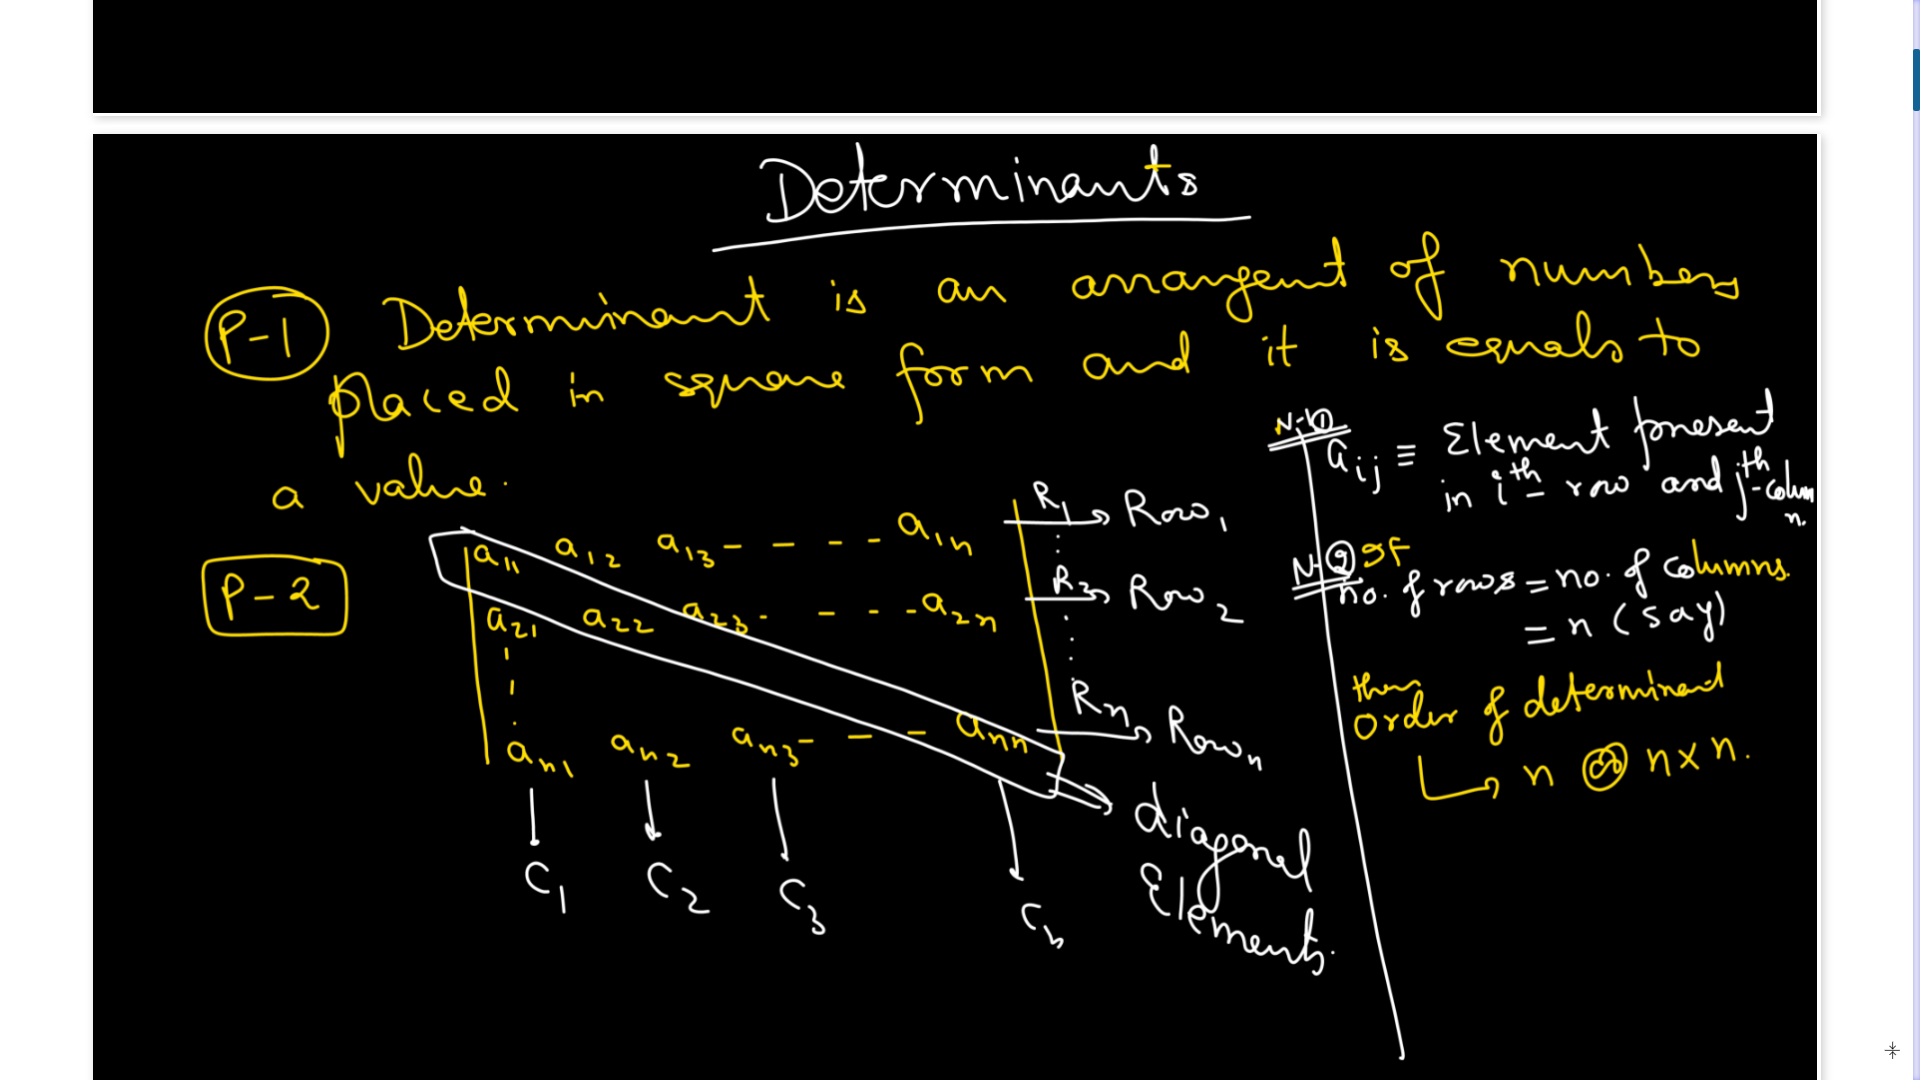 Determinants
P-1 Determinant is an arrangent of numbers
placed in square form and it is equals to
a value.
P-2
a11 a12 a13 - - - - a1n R1 → Row1
a21 a22 a23 - - - - a2n R2 → Row2
an1 an2 an3 - - - ann Rn → Rown
C1 C2 C3 Cn
diagonal
Elements.
N-①
aij ≡ Element present
in ith - row and jth - colum
n.
N-② If
no. of rows = no. of columns.
= n (say)
then
order of determinant
↳ n or n x n.